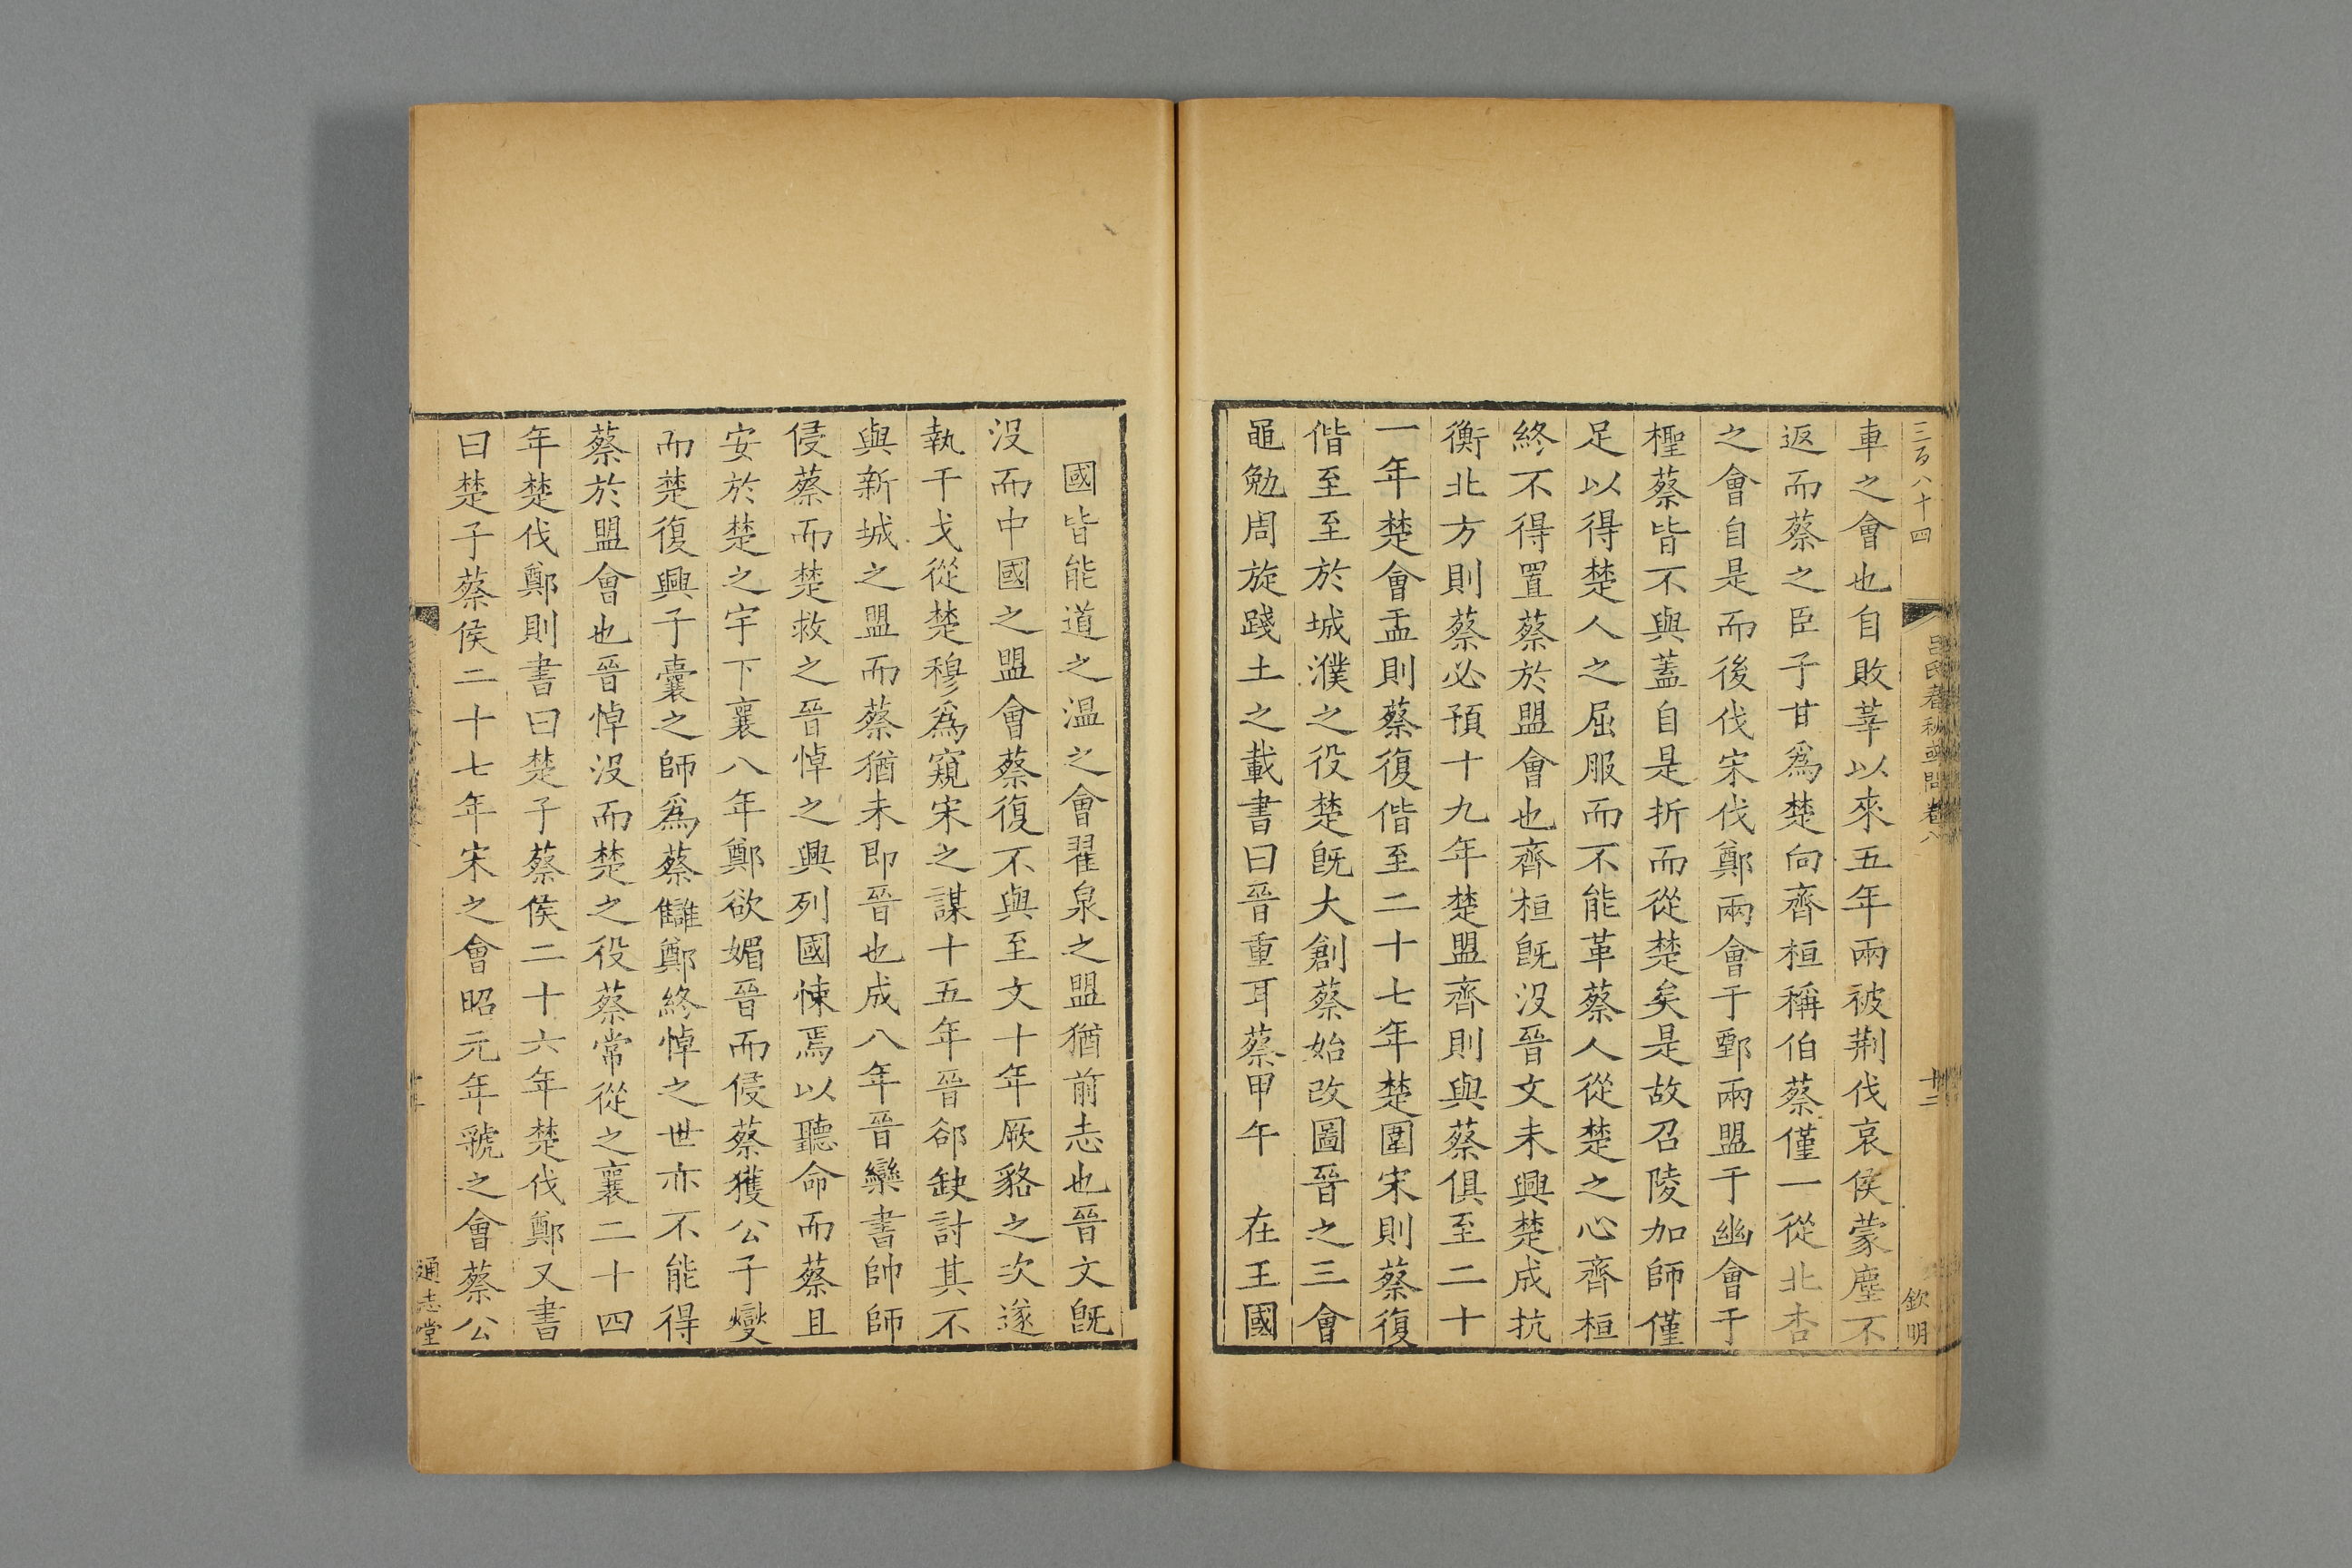 三百八十四
呂氏春秋或問卷八
十二
欽明
車之會也自敗莘以來五年兩被荆伐哀侯蒙塵不
返而蔡之臣子甘爲楚向齊桓稱伯蔡僅一從北杏
之會自是而後伐宋伐鄭兩會于鄄兩盟于幽會于
檉蔡皆不與蓋自是折而從楚矣是故召陵加師僅
足以得楚人之屈服而不能革蔡人從楚之心齊桓
終不得置蔡於盟會也齊桓旣没晉文未興楚成抗
衡北方則蔡必預十九年楚盟齊則與蔡俱至二十
一年楚會盂則蔡復偕至二十七年楚圍宋則蔡復
偕至至於城濮之役楚旣大創蔡始改圖晉之三會
黽勉周旋踐土之載書曰晉重耳蔡甲午　在王國
國皆能道之温之會翟泉之盟猶前志也晉文旣
没而中國之盟會蔡復不與至文十年厥貉之次遂
執干戈從楚穆爲窺宋之謀十五年晉郤缺討其不
與新城之盟而蔡猶未即晉也成八年晉欒書帥師
侵蔡而楚救之晉悼之興列國悚焉以聽命而蔡且
安於楚之宇下襄八年鄭欲媚晉而侵蔡獲公子燮
而楚復興子囊之師爲蔡讎鄭終悼之世亦不能得
蔡於盟會也晉悼没而楚之役蔡常從之襄二十四
年楚伐鄭則書曰楚子蔡侯二十六年楚伐鄭又書
曰楚子蔡侯二十七年宋之會昭元年虢之會蔡公
通志堂